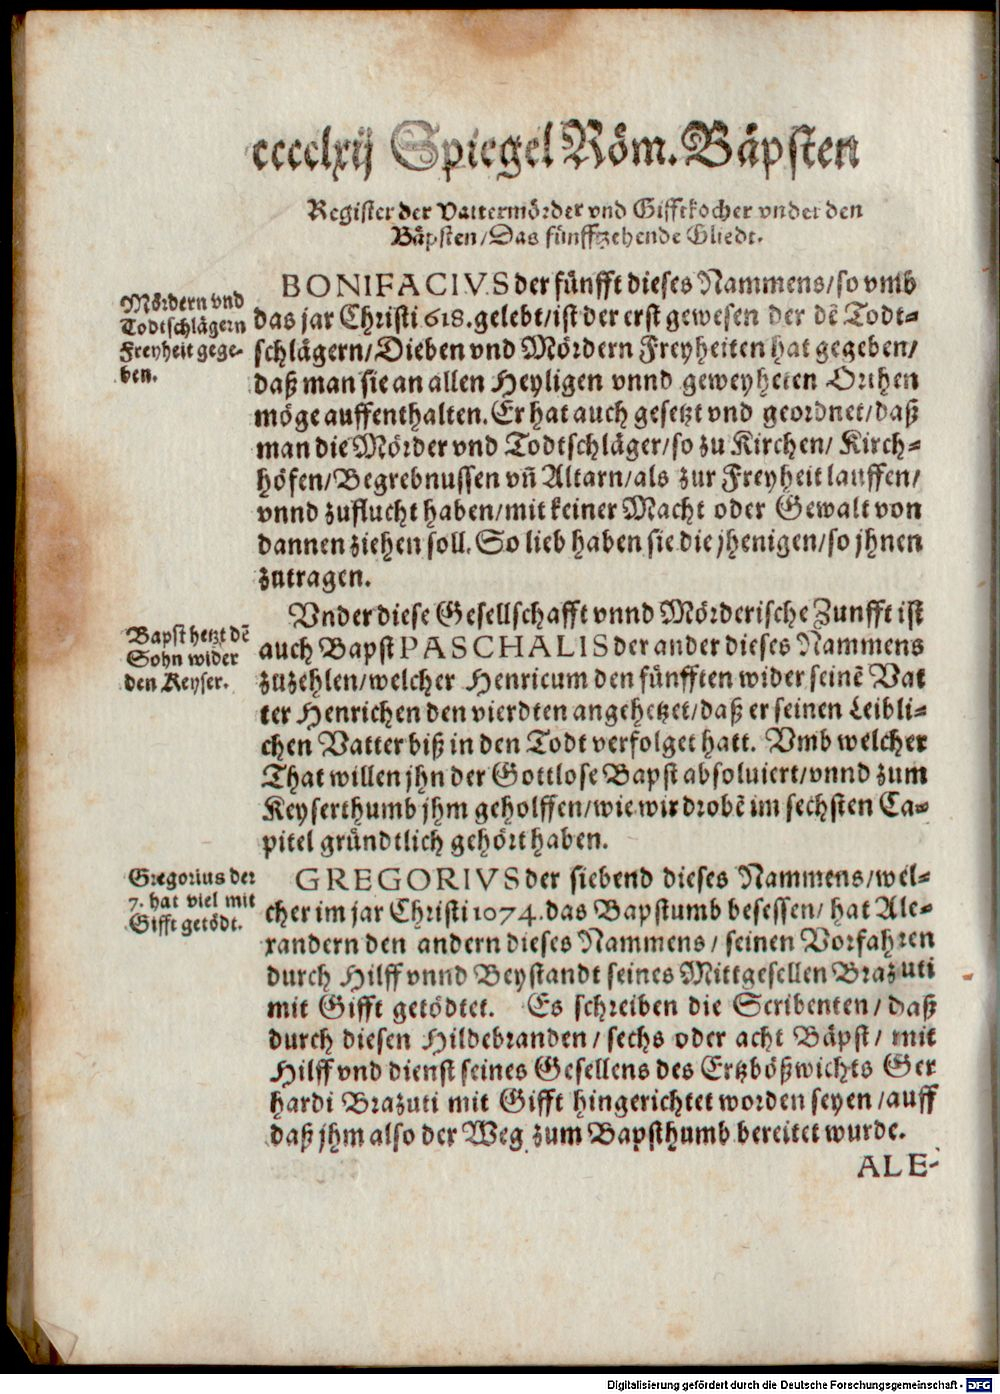 cccclxij Spiegel Röm. Bäpsten
Register der Vattermörder vnd Gifftkocher vnder den
Bäpsten/Das fünfftzehende Gliedt.
Mördern vnd
Todtschlägern
Freyheit gege-
ben.
BONIFACIVS der fünfft dieses Nammens/so vmb
das jar Christi 618. gelebt/ist der erst gewesen der dē Todt-
schlägern/Dieben vnd Mördern Freyheiten hat gegeben/
daß man sie an allen Heyligen vnnd geweyheten Orthen
möge auffenthalten. Er hat auch gesetzt vnd geordnet/daß
man die Mörder vnd Todtschläger/so zu Kirchen/ Kirch-
höfen/Begrebnussen vñ Altarn/als zur Freyheit lauffen/
vnnd zuflucht haben/mit keiner Macht oder Gewalt von
dannen ziehen soll. So lieb haben sie die jhenigen/so jhnen
zutragen.
Bapst hetzt dē
Sohn wider
den Keyser.
Vnder diese Gesellschafft vnnd Mörderische Zunfft ist
auch Bapst PASCHALIS der ander dieses Nammens
zuzehlen/welcher Henricum den fünfften wider seinē Vat
ter Henrichen den vierdten angehetzet/daß er seinen Leibli-
chen Vatter biß in den Todt verfolget hatt. Vmb welcher
That willen jhn der Gottlose Bapst absoluiert/vnnd zum
Keyserthumb jhm geholffen/wie wir drobē im sechsten Ca-
pitel gründtlich gehört haben.
Gregorius der
7. hat viel mit
Gifft getödt.
GREGORIVS der siebend dieses Nammens/wel-
cher im jar Christi 1074. das Bapstumb besessen/ hat Ale-
xandern den andern dieses Nammens/ seinen Vorfahren
durch Hilff vnnd Beystandt seines Mittgesellen Brazuti
mit Gifft getödtet. Es schreiben die Scribenten/ daß
durch diesen Hildebranden/ sechs oder acht Bäpst/ mit
Hilff vnd dienst seines Gesellens des Ertzbößwichts Ger
hardi Brazuti mit Gifft hingerichtet worden seyen/auff
daß jhm also der Weg zum Bapsthumb bereitet wurde.
ALE-
Digitalisierung gefördert durch die Deutsche Forschungsgemeinschaft - DFG